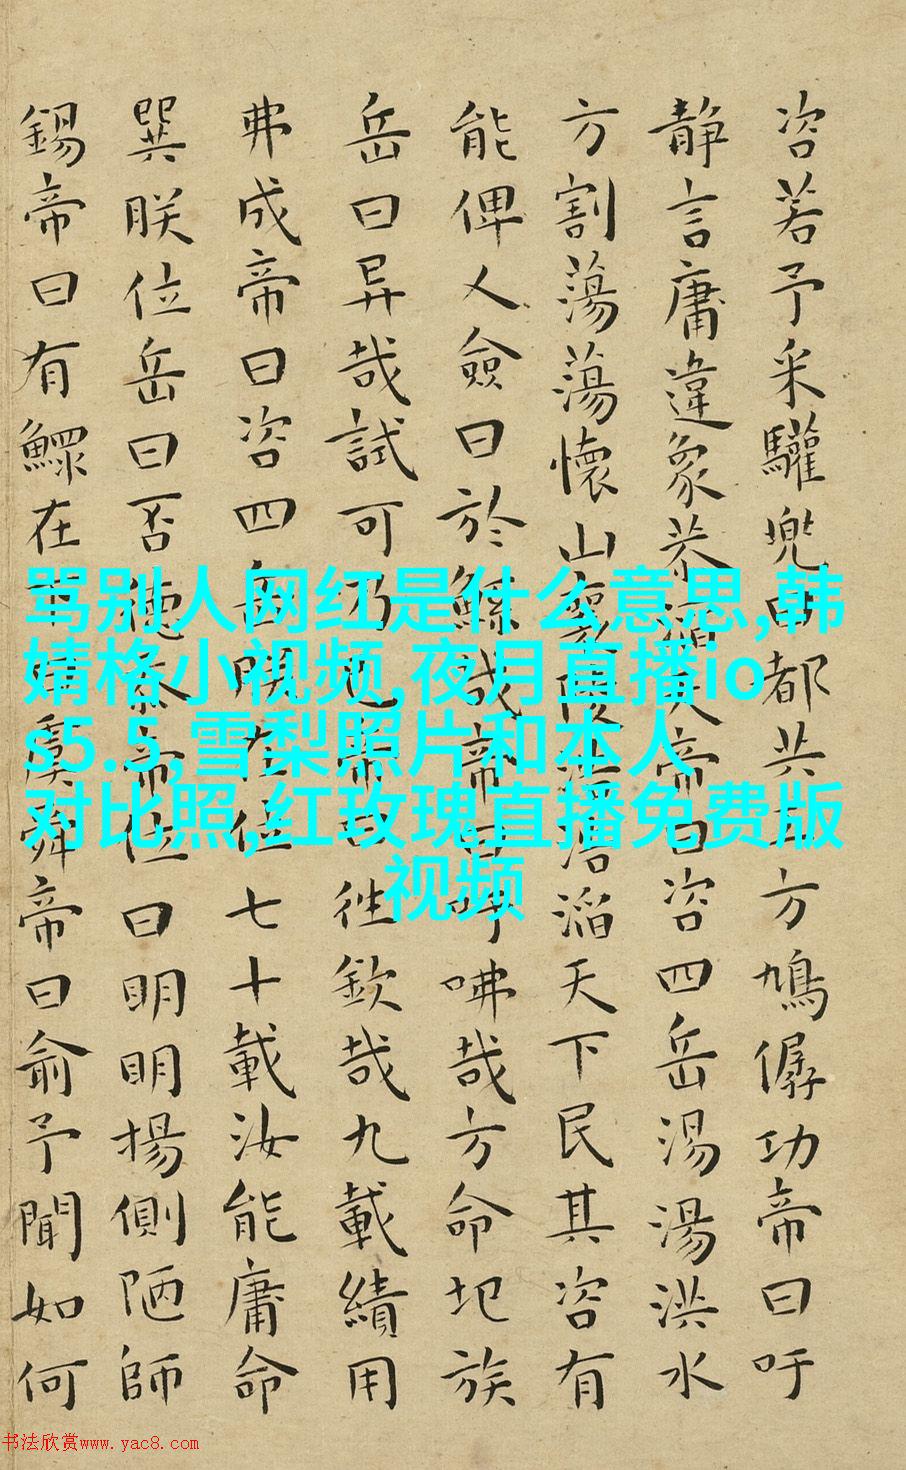 咨若予采驩兜曰都共工方鳩僝功帝曰吁
靜言庸違象恭滔天帝曰咨四岳湯湯洪水
方割蕩蕩懷山襄陵浩浩滔天下民其咨有
能俾乂僉曰於鯀哉帝曰吁咈哉方命圮族
岳曰异哉試可乃已帝曰往欽哉九載績用
弗成帝曰咨四岳朕在位七十載汝能庸命
巽朕位岳曰否德忝帝位曰明明揚側陋師
錫帝曰有鰥在下曰虞舜帝曰俞予聞如何
骂别人网红是什么意思,韩
婧格小视频,夜月直播io
s5.5,雪梨照片和本人
对比照,红玫瑰直播免费版
视频
书法欣赏www.yac8.com